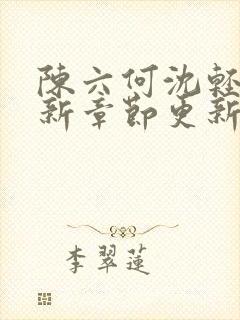 陳六何沈輕
新章節更新
李翠蓮